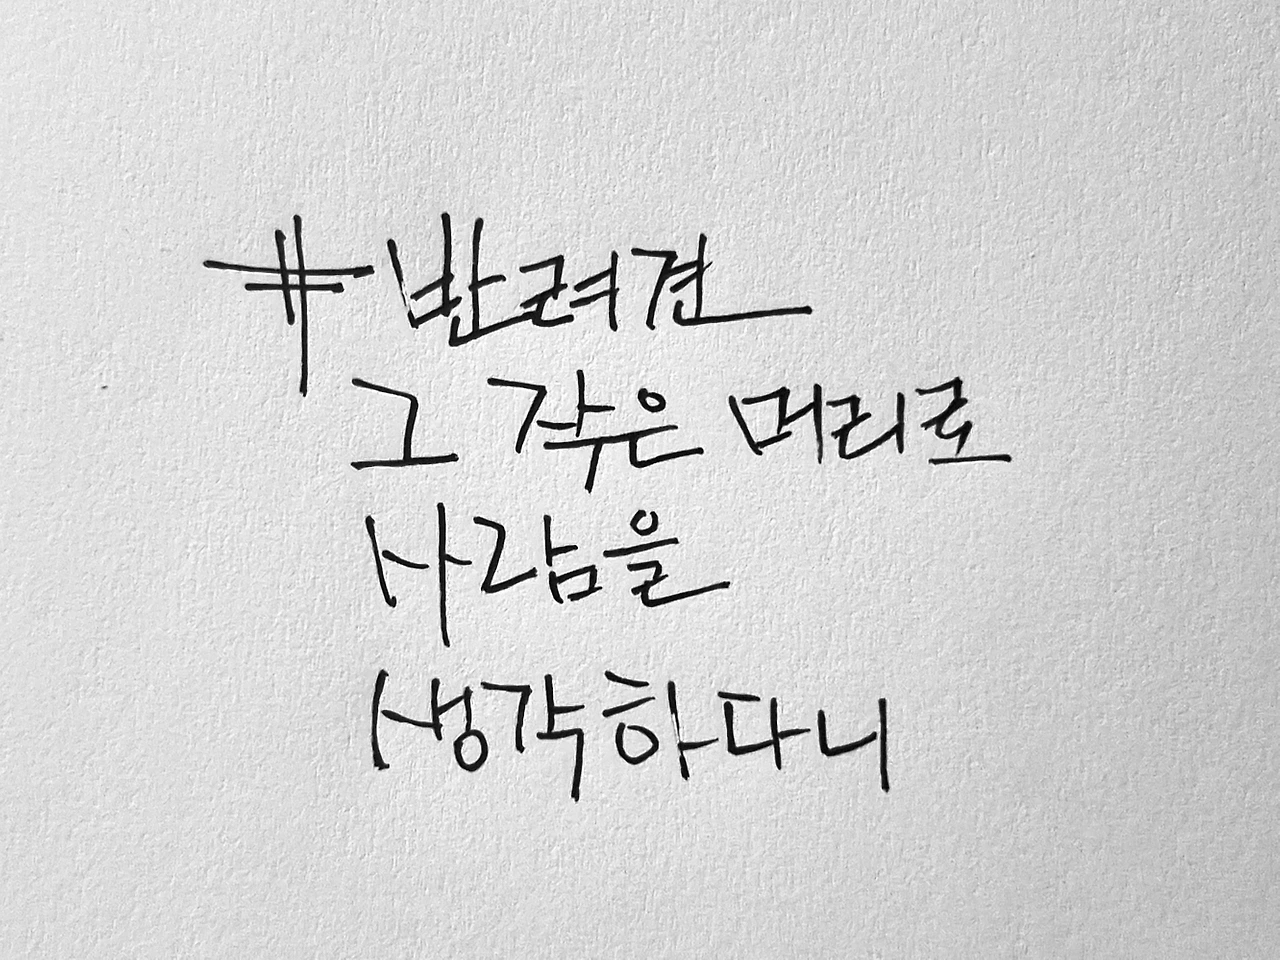 #반려견
그 작은 머리로
사람을
생각하다니